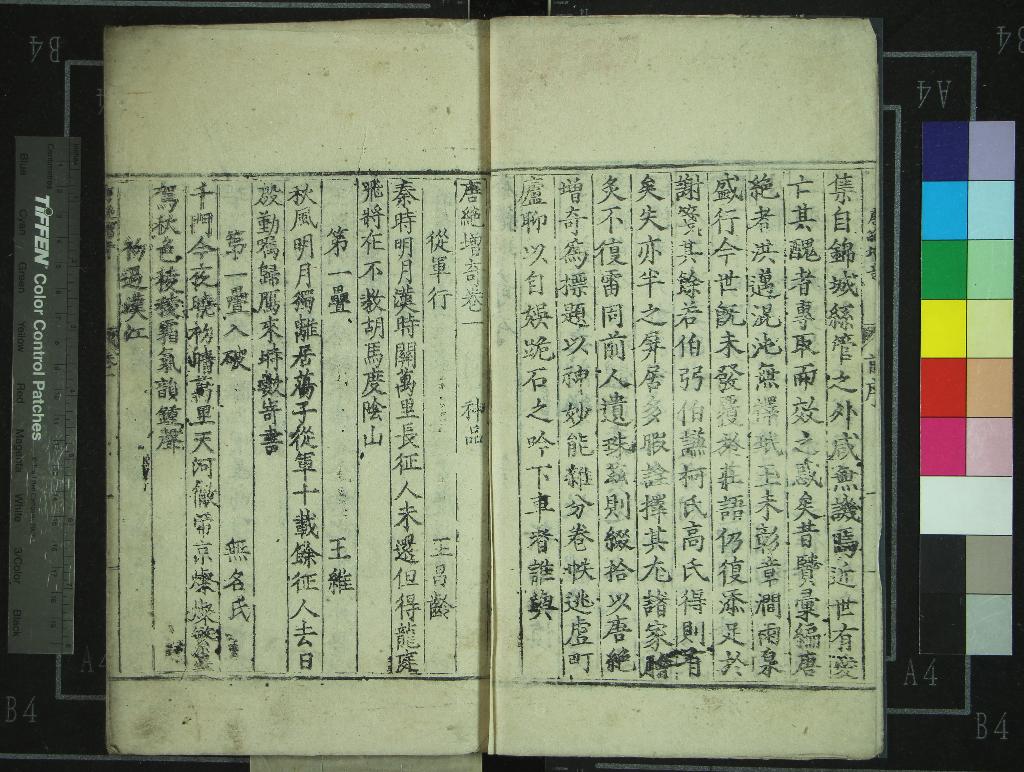 集自錦城絲管之外咸無譏焉近世有愛
亡其醜者專取而效之惑矣昔贒彙編唐
絶者洪邁混沌無擇珉玉未彰章澗兩泉
盛行今世旣未發覆叅莊語仍復添足於
謝箋其餘若伯弜伯謙柯氏高氏得則有
矣失亦半之屏居多暇詮擇其尤諸家膾
炙不復雷同前人遺珠玆則綴拾以唐絶
增奇爲標題以神妙能雜分卷帙逃虛町
廬聊以自娛跪石之吟下車者誰歟
唐絶增奇卷一 神品
從軍行 王昌齡
秦時明月漢時關萬里長征人未還但得龍庭
飛將在不敎胡馬度陰山
第一疊 王維
秋風明月獨離居蕩子從軍十載餘征人去日
殷勤囑歸鴈來時數寄書
第一疊入破 無名氏
千門今夜曉初晴萬里天河徹帝京燦燦繁
駕秋色稜稜霜氣韻鍾聲
初過漢江
TIFFEN Color Control Patches
Blue Cyan Green Yellow Red Magenta White 3/Color Black
B4
A4
A4
B4